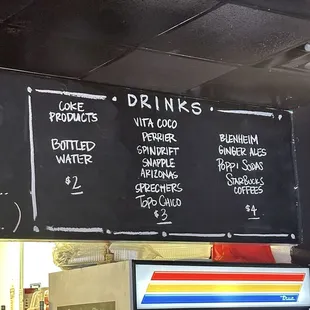 DRINKS
COKE
PRODUCTS
BOTTLED
WATER
$2
VITA COCO
PERRIER
SPINDRIFT
SNAPPLE
ARIZONAS
SPRECHERS
TOPO CHICO
$3
BLENHEIM
GINGER ALES
POPPI SODAS
STARBUCKS
COFFEES
$4
True